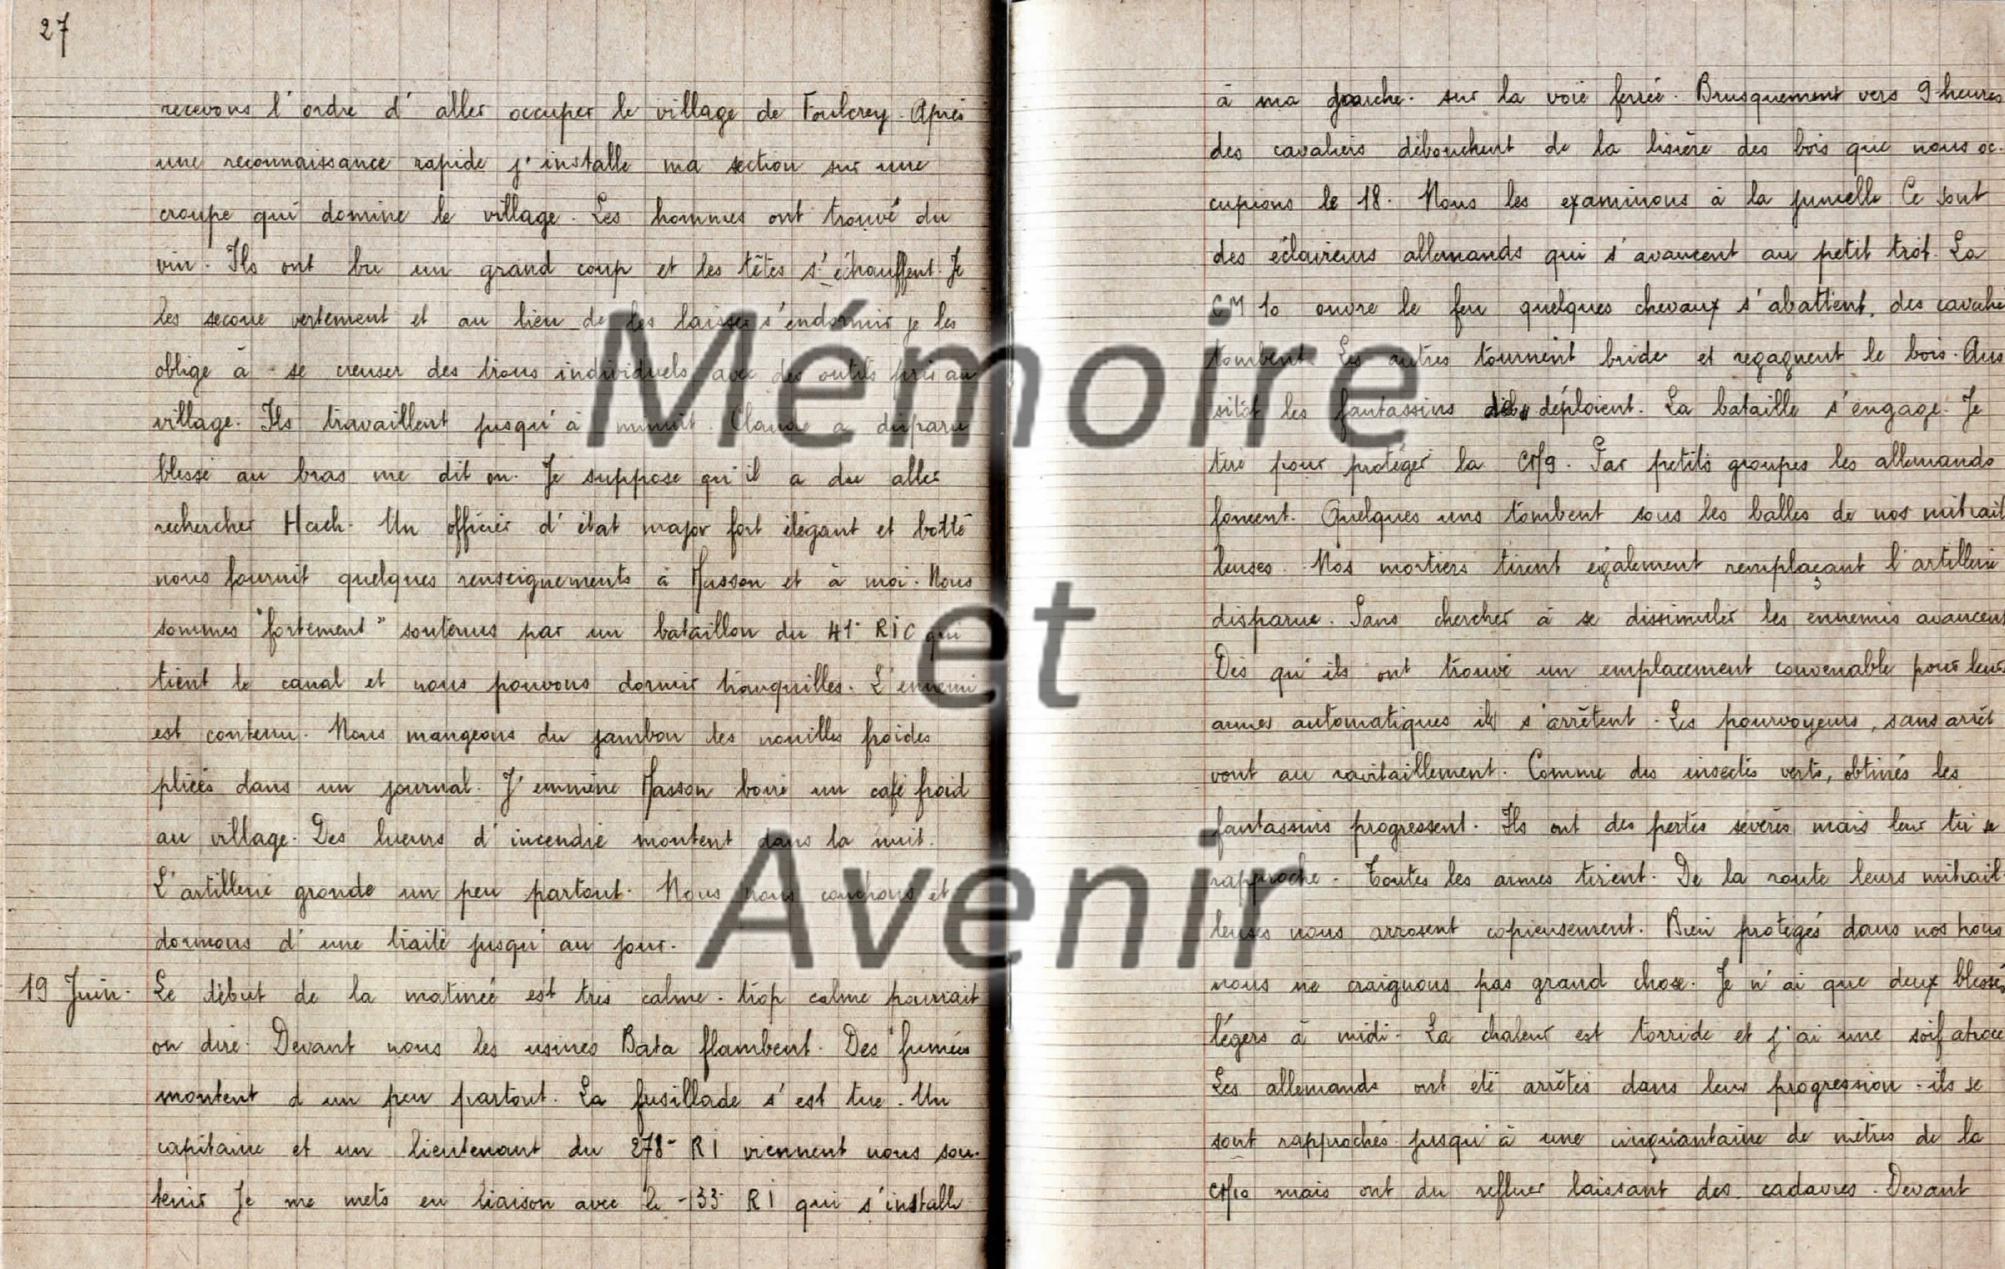 27
recevons l'ordre d'aller occuper le village de Foulcrey. Après
une reconnaissance rapide j'installe ma section sur une
croupe qui domine le village. Les hommes ont trouvé du
vin. Ils ont bu un grand coup et les têtes s'échauffent. Je
les secoue vertement et au lieu de les laisser s'endormir je les
oblige à se creuser des trous individuels avec des outils pris au
village. Ils travaillent jusqu'à minuit. Claude a disparu
blessé au bras me dit on. Je suppose qu'il a du aller
rechercher Hach. Un officier d'état major fort élégant et botté
nous fournit quelques renseignements à Masson et à moi. Nous
sommes "fortement" soutenus par un bataillon du 41e RIC qui
tient le canal et nous pouvons dormir tranquilles. L'ennemi
est contenu. Nous mangeons du jambon des nouilles froides
pliées dans un journal. J'emmène Masson boire un café froid
au village. Des lueurs d'incendie montent dans la nuit.
L'artillerie gronde un peu partout. Nous nous couchons et
dormons d'une traite jusqu'au jour.
19 Juin. Le début de la matinée est très calme. trop calme pourrait
on dire. Devant nous les usines Bata flambent. Des fumées
montent d un peu partout. La fusillade s'est tue. Un
capitaine et un lieutenant du 278e RI viennent nous sou-
tenir Je me mets en liaison avec le 133 RI qui s'installe
à ma gauche. sur la voie ferrée. Brusquement vers 9 heures
des cavaliers débouchent de la lisière des bois que nous oc-
cupions le 18. Nous les examinons à la jumelle Ce sont
des éclaireurs allemands qui s'avancent au petit trot. La
CM 10 ouvre le feu quelques chevaux s'abattent, des cavaliers
tombent. Les autres tournent bride et regagnent le bois. Aus
sitôt les fantassins déploient. La bataille s'engage. Je
tire pour protéger la CM9. Par petits groupes les allemands
foncent. Quelques uns tombent sous les balles de nos mitrail
leuses. Nos mortiers tirent également remplaçant l'artillerie
disparue. Sans chercher à se dissimuler les ennemis avancent
Dès qu'ils ont trouvé un emplacement convenable pour leurs
armes automatiques ils s'arrêtent. Les pourvoyeurs, sans arrêt
vont au ravitaillement. Comme des insectes verts, obtinés les
fantassins progressent. Ils ont des pertes sévères mais leur tir se
rapproche. Toutes les armes tirent. De la route leurs mitrail-
leuses nous arrosent copieusement. Bien protégés dans nos trous
nous ne craignons pas grand chose. Je n'ai que deux blessés
légers à midi. La chaleur est torride et j'ai une soif atroce
Les allemands ont été arrêtés dans leur progression. ils se
sont rapprochés jusqu'à une cinquantaine de mètres de la
CM10 mais ont du refluer laissant des cadavres. Devant
Mémoire
et
Avenir